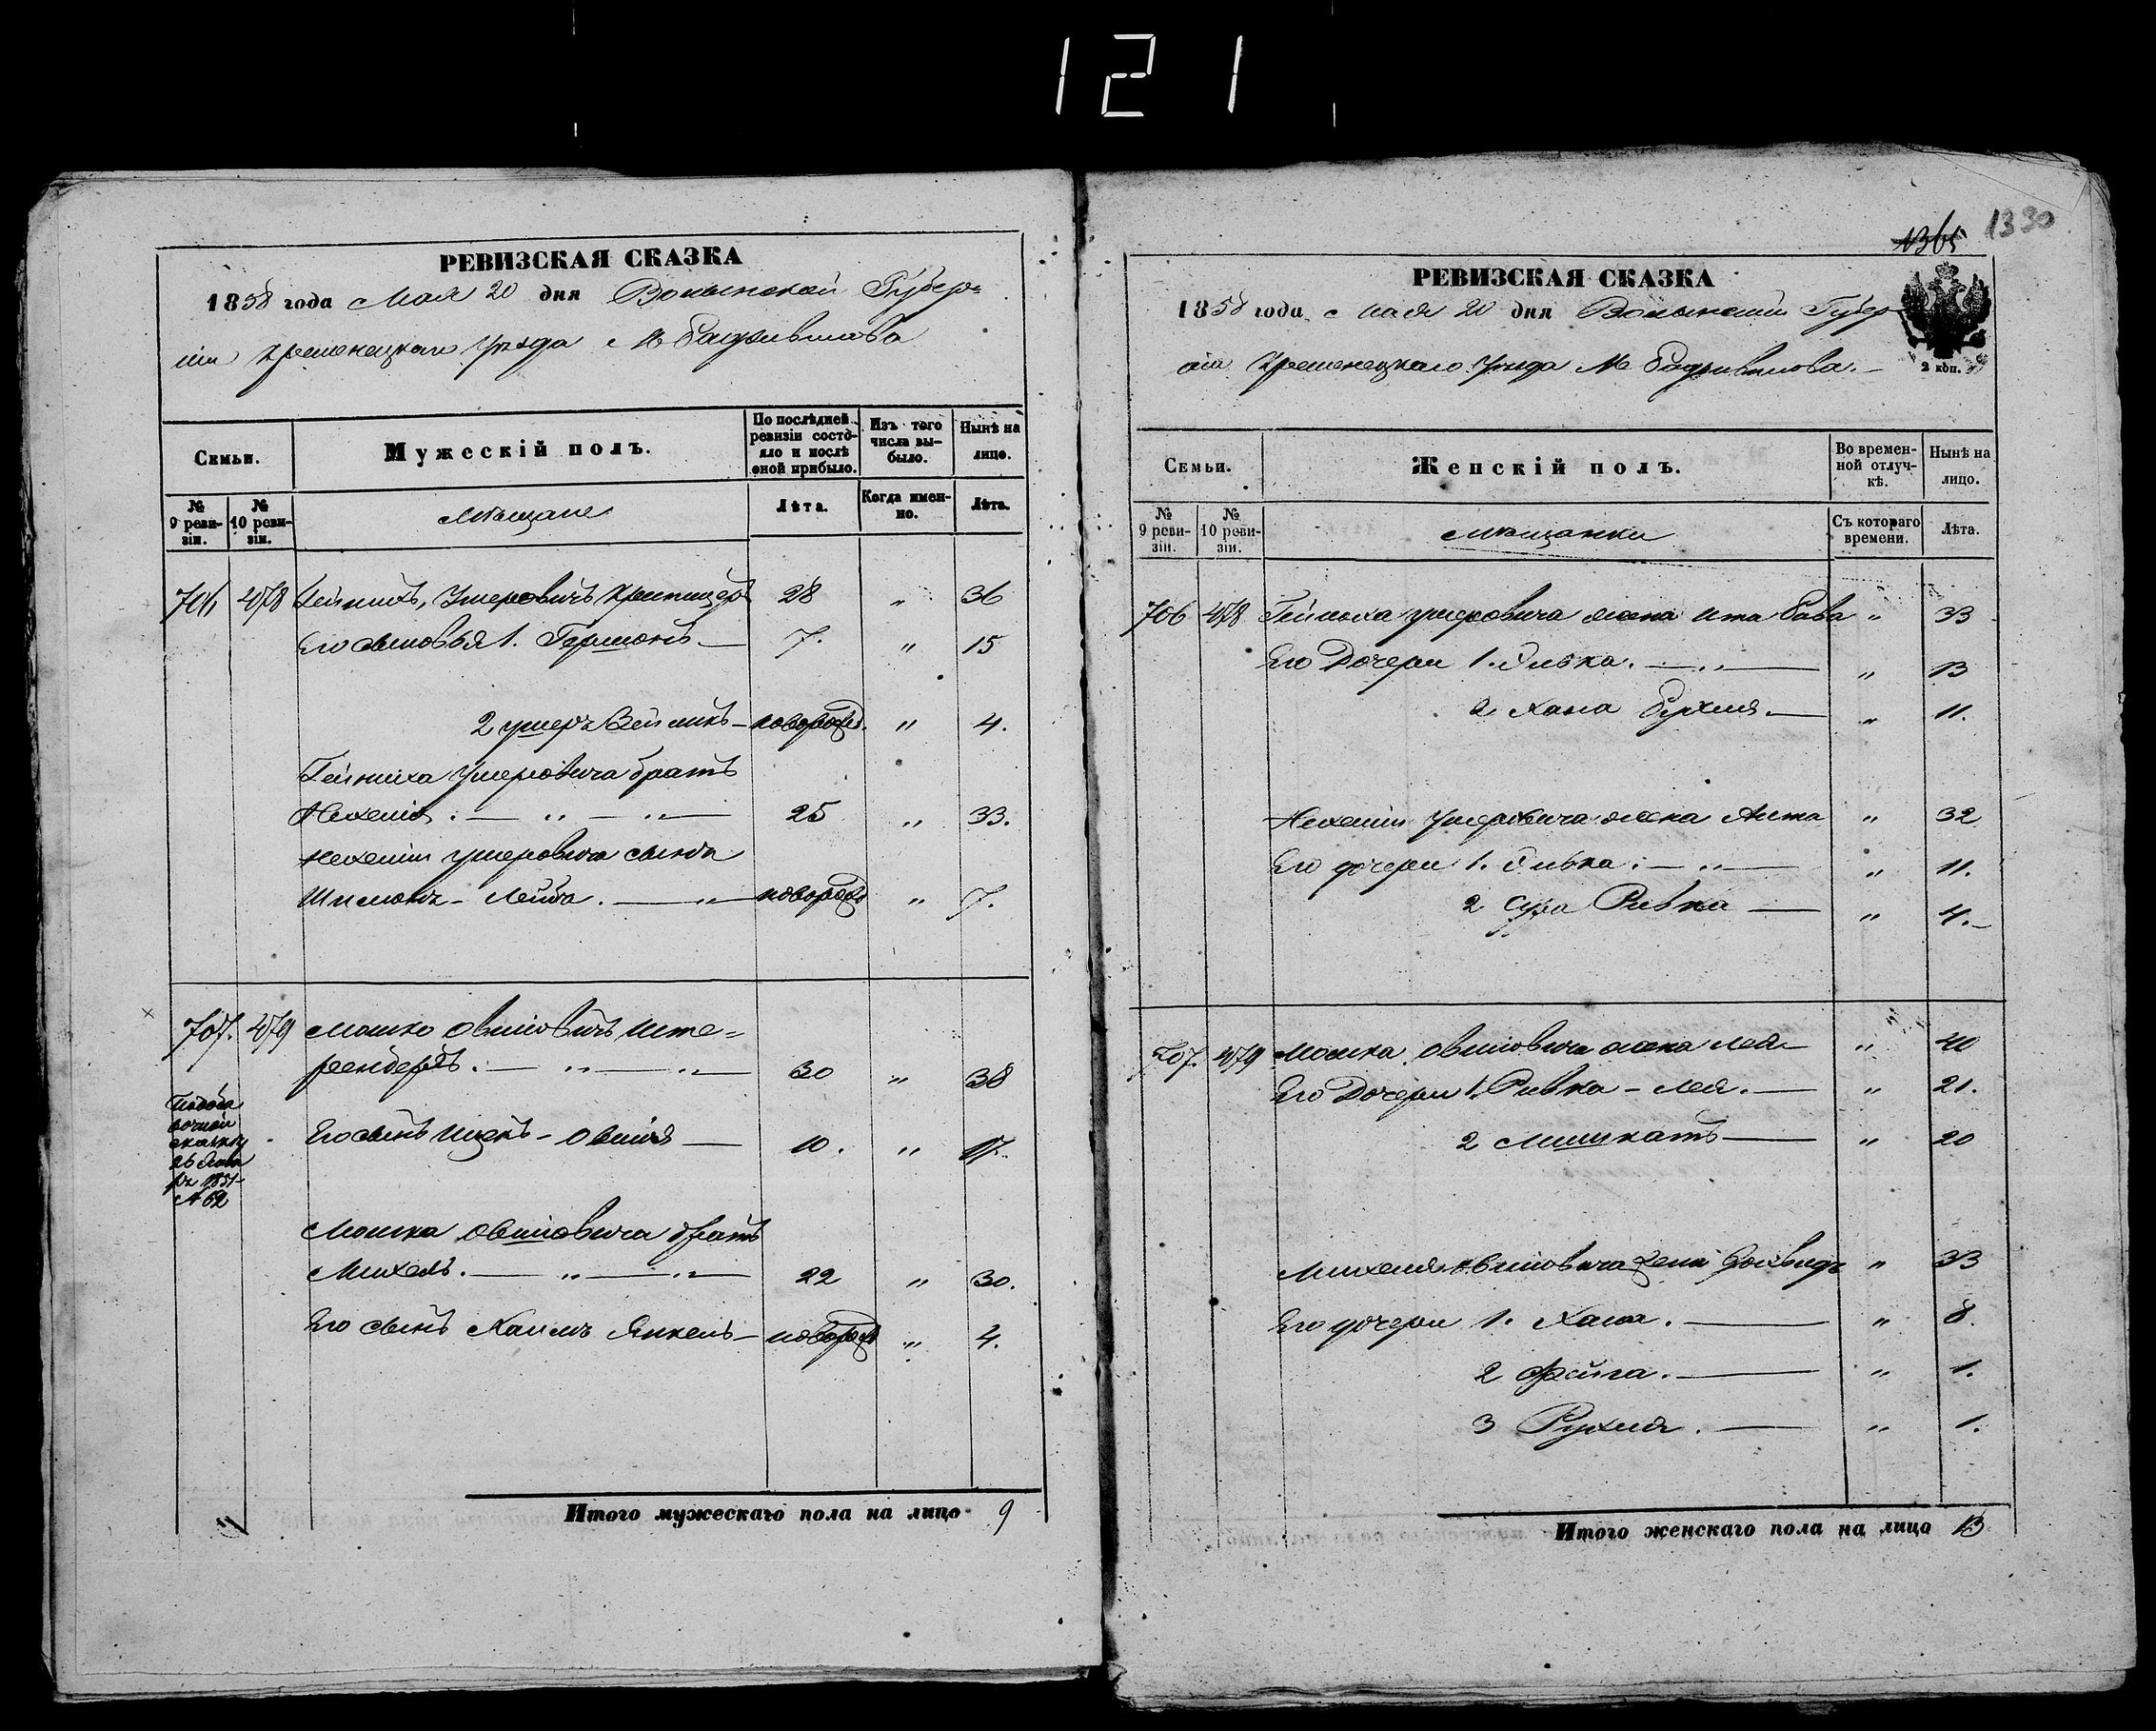 121
РЕВИЗСКАЯ СКАЗКА
1858 года Мая 20 дня Волынской Губер=
ніи Кременецкаго Уѣзда М Радзивилова
Семьи.
Мужескій полъ.
По послѣдней ревизіи состояло и послѣ оной прибыло.
Изъ того числа выбыло.
Нынѣ на лицо.
№ 9 ревизіи.
№ 10 ревизіи.
Мѣщане
Лѣта.
Когда именно.
Лѣта.
706 478 Гейнихъ, Умеровичъ 28 " 36
Его сыновья 1. Гершонъ — 7. " 15
2 Умеръ — новорожд. " 4.
Гейниха Умеровича братъ
Нехемія . — " — " — 25 " 33.
Нехеміи Умеровича сынъ
Шимонъ - Лейба . — " — новорожд " 7.
707. 479 Мошко Овшіовичъ Ште=
ренберъ . — " — " — 30 " 38
Его сынъ Ицекъ - Овшія — 10. " 17.
26
1851
№ 62
Мошка Овшіовича братъ
Михель . — " — " — 22 " 30.
Его сынъ Хаимъ Янкель — новорожд " 4.
Итого мужескаго пола на лицо 9
1365
1330
РЕВИЗСКАЯ СКАЗКА
1858 года Мая 20 дня Волынской Губер
ніи Кременецкаго Уѣзда М Радзивилова. —
2 коп.
Семьи.
Женскій полъ.
Во временной отлучкѣ.
Нынѣ на лицо.
№ 9 ревизіи.
№ 10 ревизіи.
Мѣщанки
Съ котораго времени.
Лѣта.
706 478 Гейниха Умеровича жена Ита " 33
Его Дочери 1. Сивка . — " — " 13
2 Хана Рухля — " 11.
Нехеміи Умеровича жена " 32
Его дочери 1. Сивка . — " — " 11.
2 Сура Ривка — " 4. —
707. 479 Мошка Овшіовича жена Лея — " 40
Его Дочери 1. Ривка - Лея . — " 21.
2 — " 20
Михеля Овшіовича жена " 33
Его дочери 1. Хана . — " 8.
2 Фейга . — " 1.
3 Рухля . — " 1.
Итого женскаго пола на лицо 13